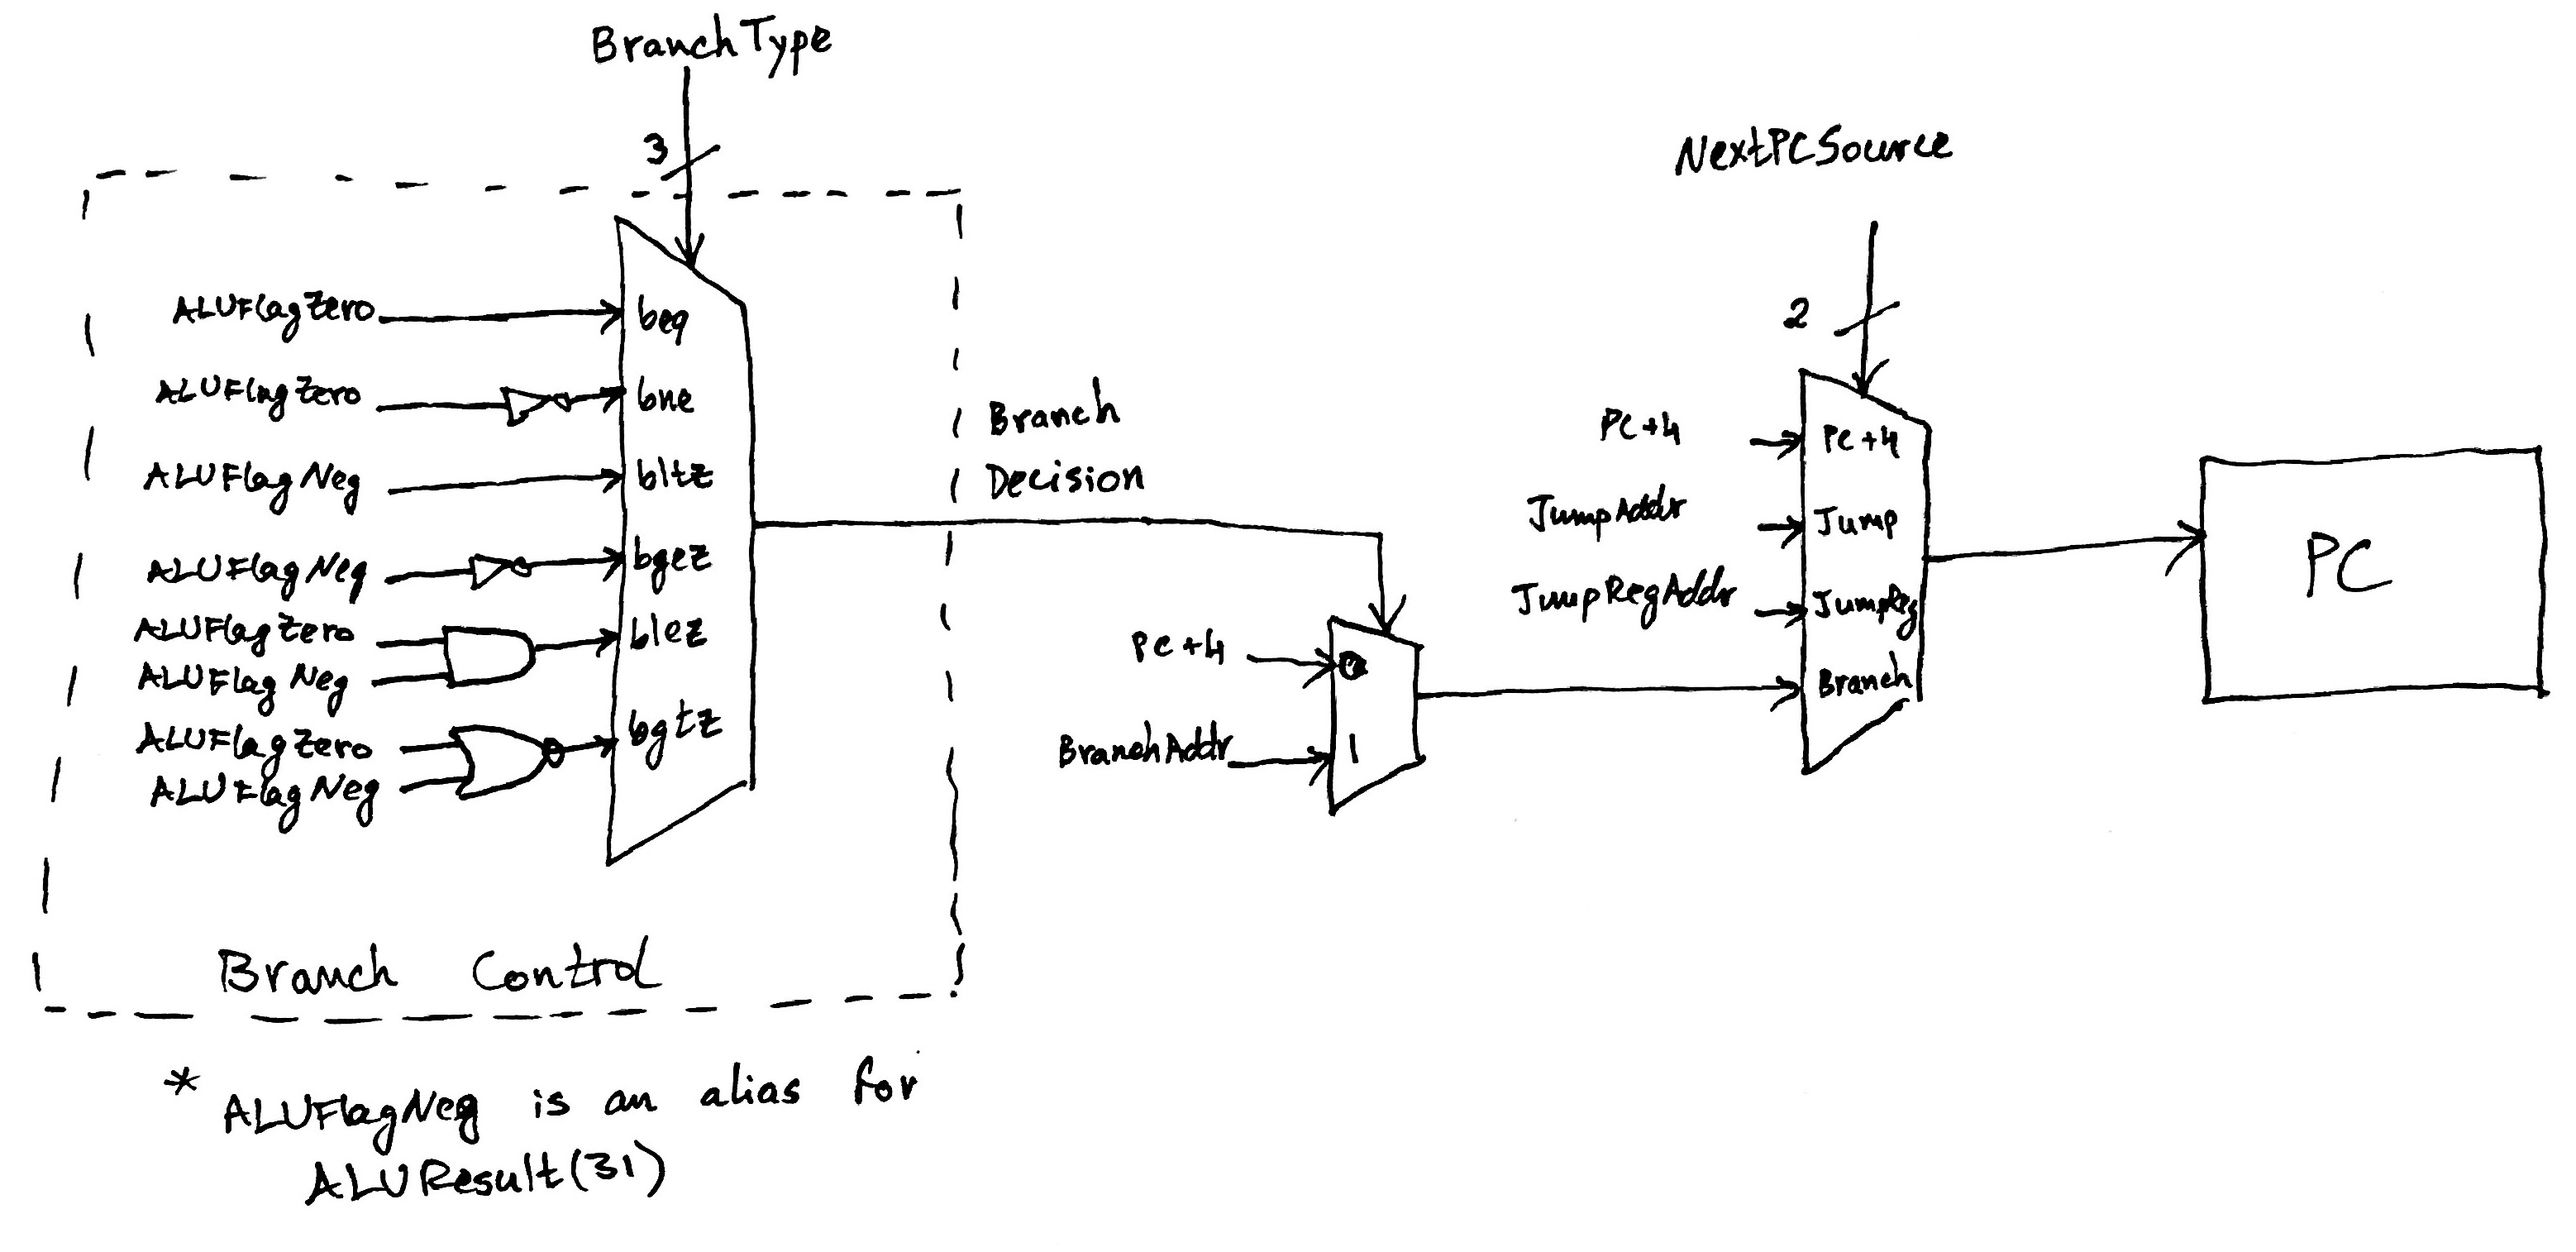 BranchType
3
ALUFlagZero
beq
ALUFlagZero
bne
ALUFlagNeg
bltz
ALUFlagNeg
bgez
ALUFlagZero
ALUFlagNeg
blez
ALUFlagZero
ALUFlagNeg
bgtz
Branch Control
Branch
Decision
PC+4
0
BranchAddr
1
NextPCSource
2
PC+4
PC+4
JumpAddr
Jump
JumpRegAddr
JumpReg
Branch
PC
* ALUFlagNeg is an alias for
ALUResult(31)